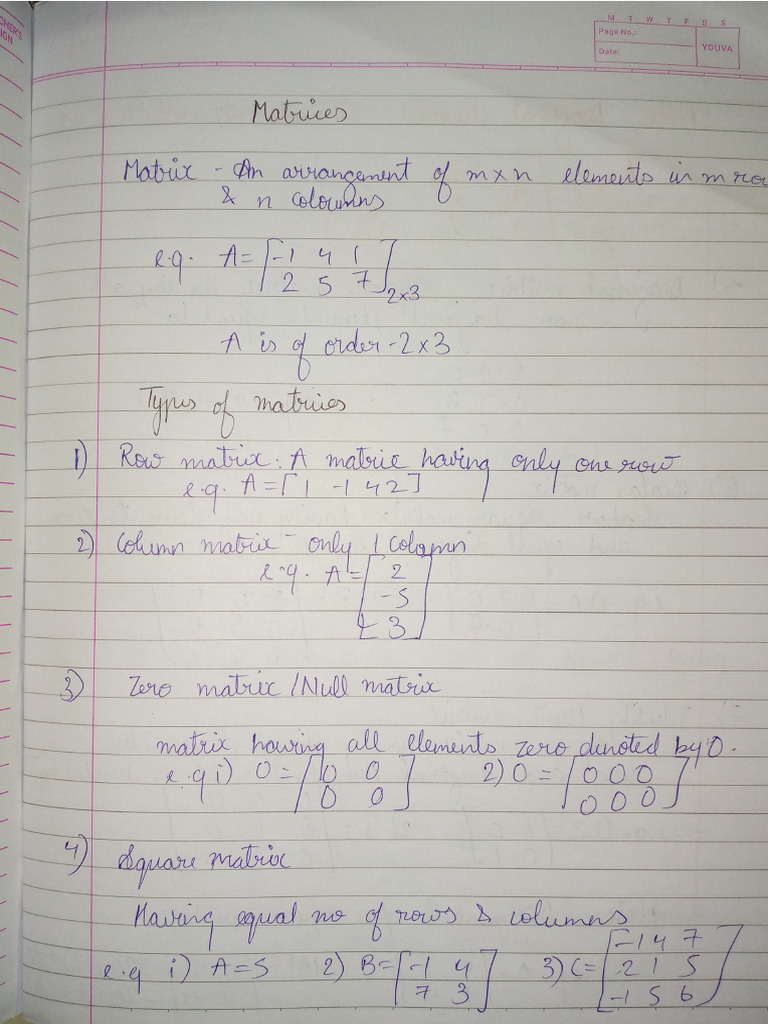 M T W T F S S
Page No.:
Date:
YOUVA
Matrices
Matrix - An arrangement of m×n elements in m row
& n coloumns
e.g. A = [-1 4 1
2 5 7] 2×3
A is of order - 2×3
Types of matrices
1) Row matrix : A matrix having only one row
e.g. A = [1 -1 4 2]
2) Column matrix - only 1 column
e.g. A = [2
-5
3]
3) Zero matrix / Null matrix
matrix having all elements zero denoted by O.
e.g i) O = [0 0 2) O = [0 0 0
0 0] 0 0 0]
4) Square matrix
Having equal no of rows & columns
e.g i) A = 5 2) B = [-1 4 3) C = [-1 4 7
7 3] 2 1 5
-1 5 6]